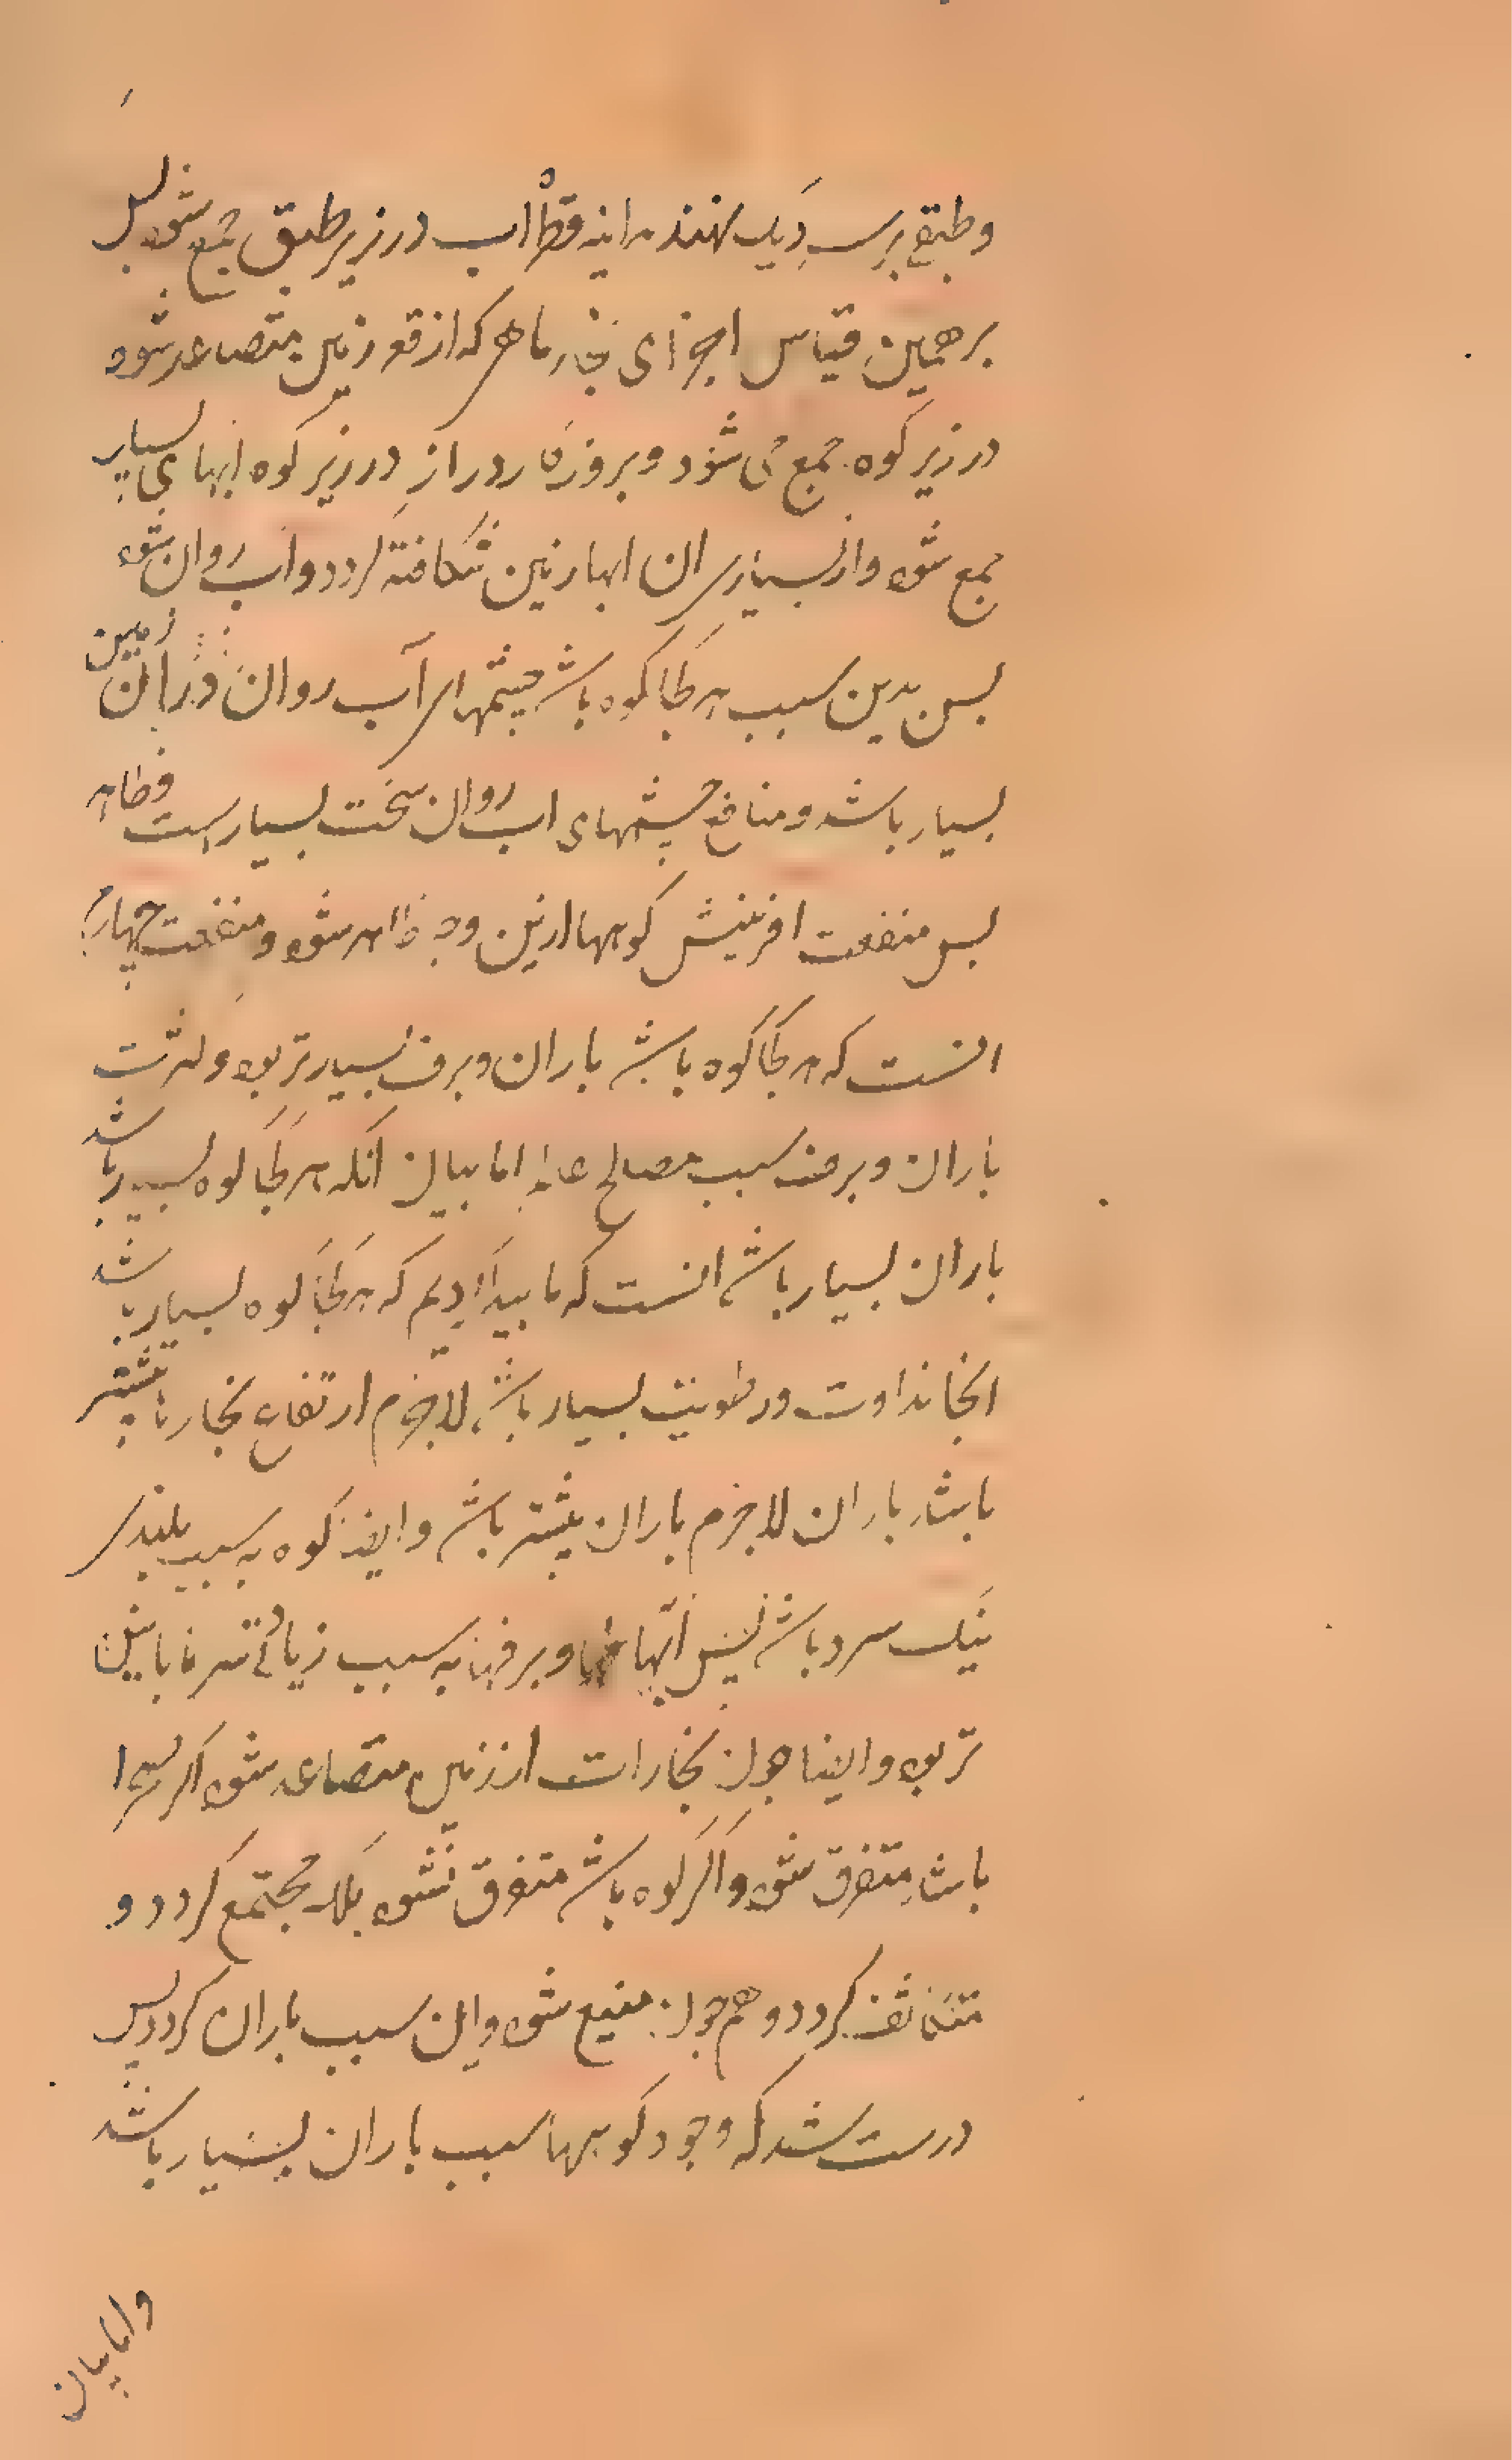 وطبقے برسر دیک نهند هراینه قطره اب در زیر طبق جمع شود پس
بر همین قیاس اجزای بخار ماهر که از قعر زمین متصاعد شود
در زیر کوه جمع می شود وبروزکار دراز در زیر کوه ابهای بسیار
جمع شود واز بسیاری ان ابها زمین شکافته کردد واب روان شود
پس بدین سبب هر کجا کوه باشد چشمهای آب روان دران زمین
بسیار باشد ومنافع چشمهای اب روان سخت بسیار است وظاهر
پس منفعت افرینش کوهها ازین وجه ظاهر شود ومنفعت چهارم
انست که هر کجا کوه باشد باران وبرف بسیار تر بود وکثرت
باران وبرف سبب مصالح عالم اما بیان انکه هر کجا کوه بسیار باشد
باران بسیار باشد انست که ما پیدا کردیم که هر کجا کوه بسیار باشد
انجا نداوت ورطوبت بسیار باشد لاجرم ارتفاع بخارها بیشتر
باشد باران لاجرم باران بیشتر باشد وایضا کوه به سبب بلندی
نیک سرد باشد پس انجا وبرفها به سبب زیادتی سرما باشد
تر بود وایضا چون بخارات از زمین متصاعد شود اکر صحرا
باشد متفرق شود واکر کوه باشد متفرق نشود بلکه مجتمع کردد و
متکاثف کردد وهم چون منیع شود واین سبب باران کردد پس
درست شد که وجود کوهها سبب باران بسیار باشد
واما بیان